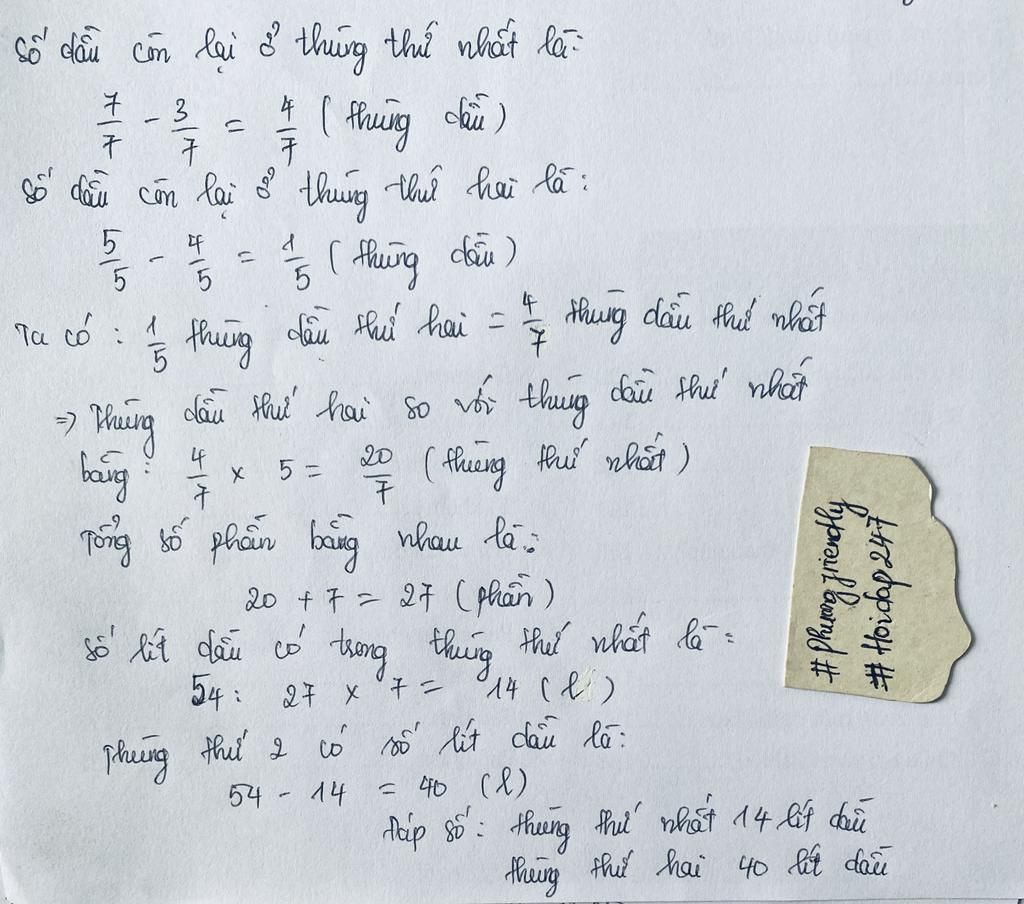 Số dầu còn lại ở thùng thứ nhất là:
7/7 - 3/7 = 4/7 (thùng dầu)
Số dầu còn lại ở thùng thứ hai là:
5/5 - 4/5 = 1/5 (thùng dầu)
Ta có: 1/5 thùng dầu thứ hai = 4/7 thùng dầu thứ nhất
=> Thùng dầu thứ hai so với thùng dầu thứ nhất
bằng: 4/7 x 5 = 20/7 (thùng thứ nhất)
Tổng số phần bằng nhau là:
20 + 7 = 27 (phần)
Số lít dầu có trong thùng thứ nhất là:
54 : 27 x 7 = 14 (l)
Thùng thứ 2 có số lít dầu là:
54 - 14 = 40 (l)
Đáp số: thùng thứ nhất 14 lít dầu
thùng thứ hai 40 lít dầu
#phuongfriendly
#Hoidap247